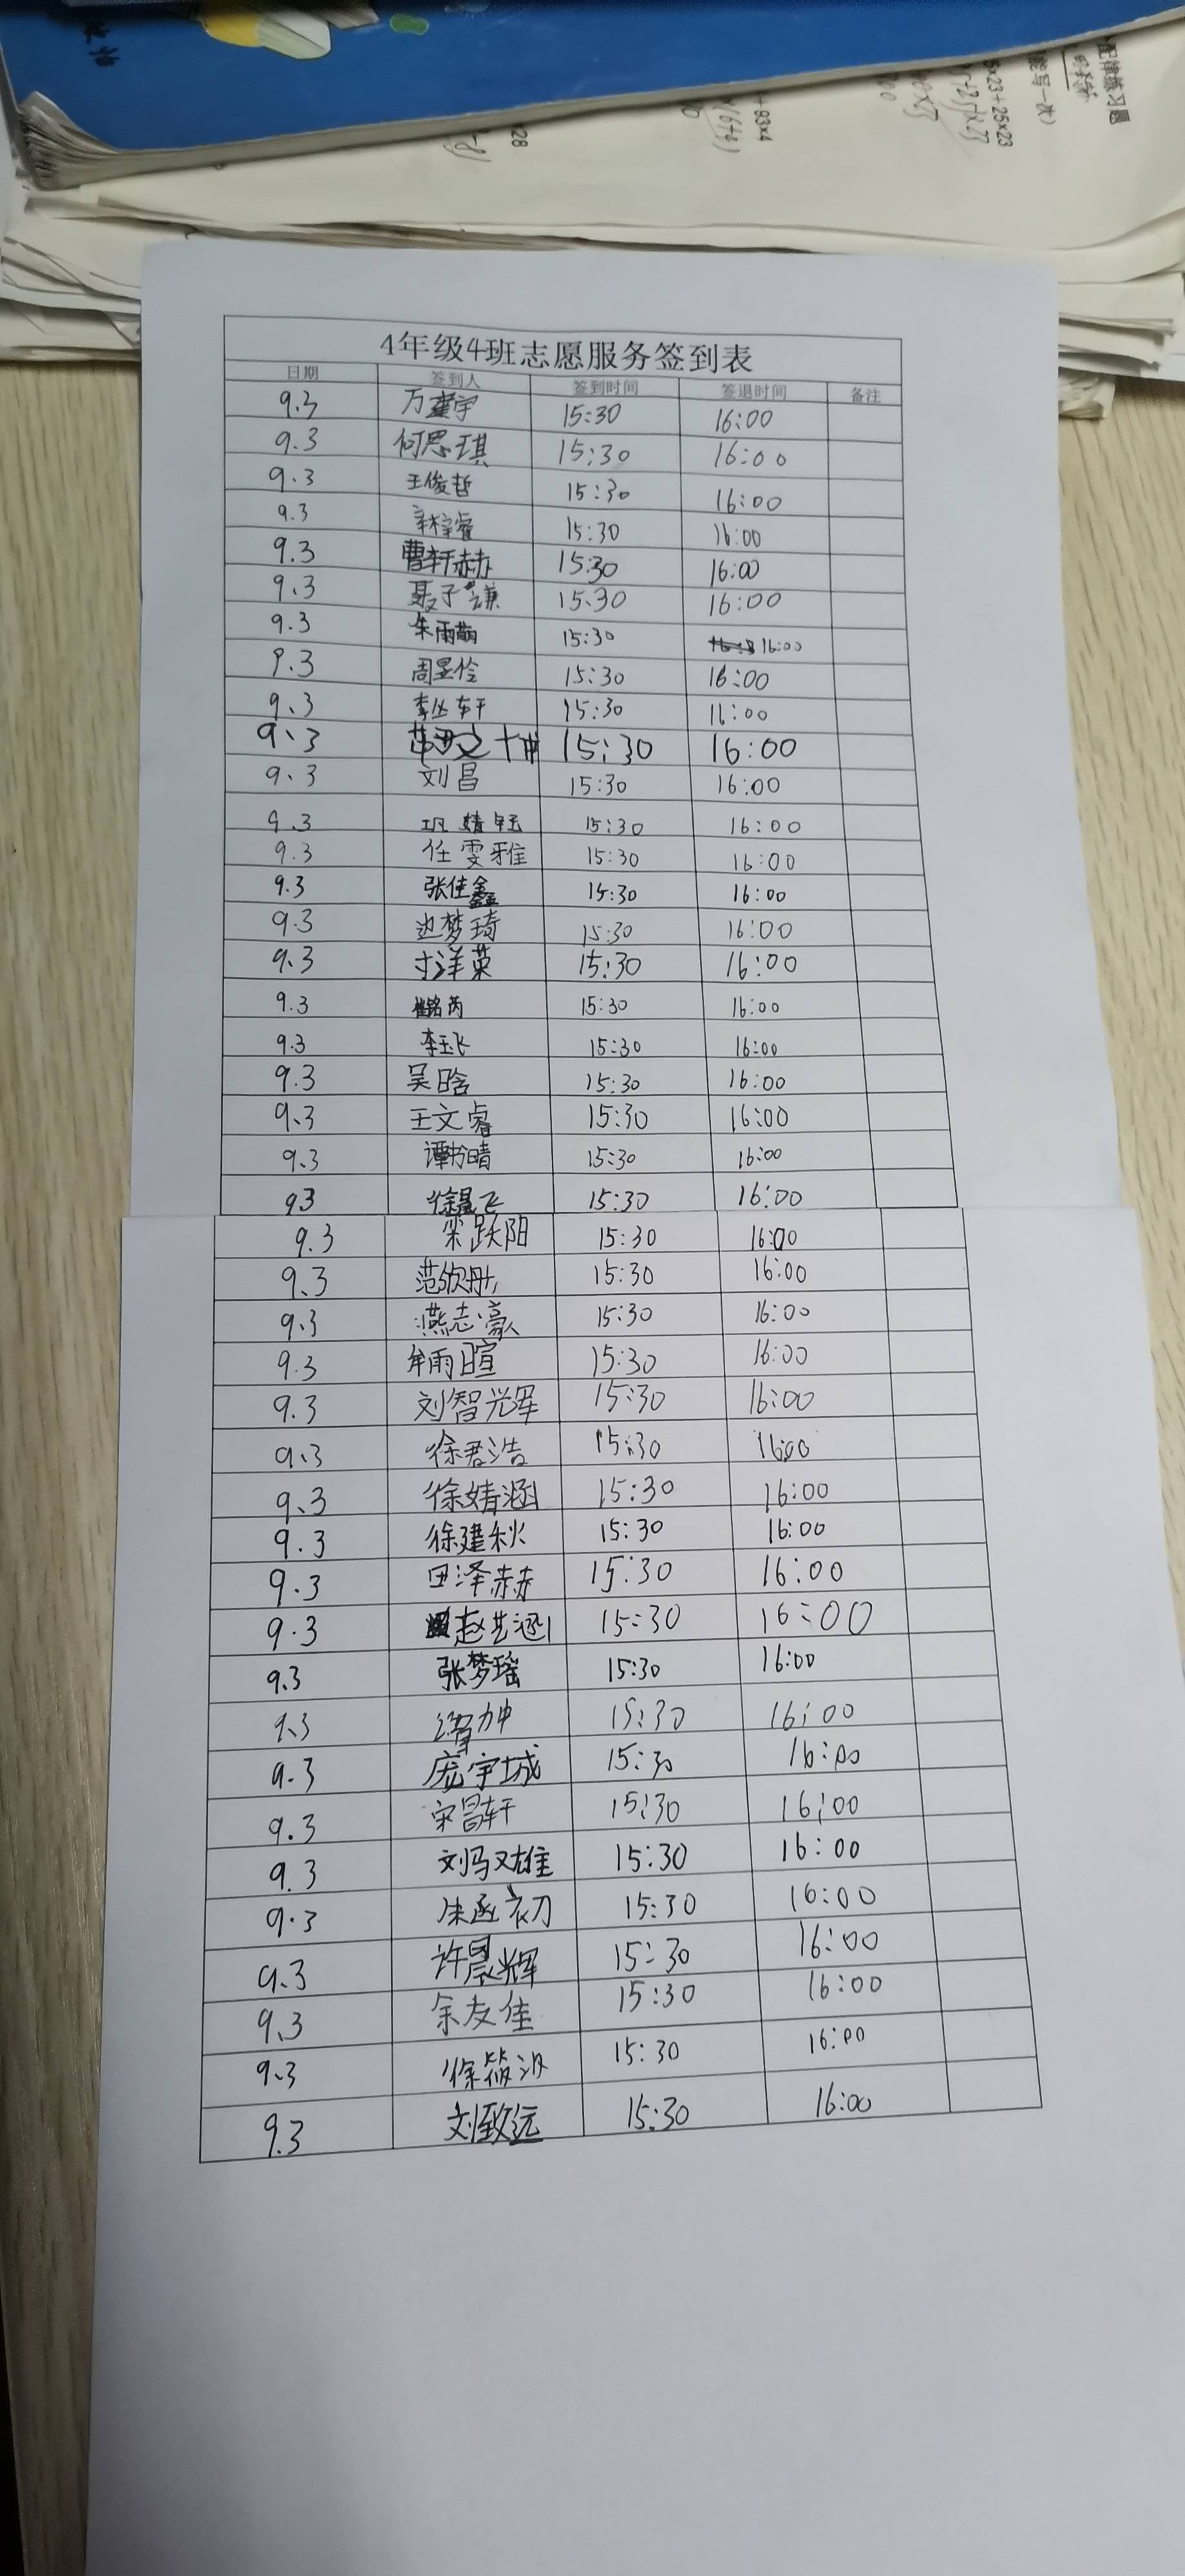 配律练习题
4年级4班志愿服务签到表
日期 签到人 签到时间 签退时间 备注
9.3 万 宇 15:30 16:00
9.3 何思琪 15:30 16:00
9.3 王俊哲 15:30 16:00
9.3 辛梓睿 15:30 16:00
9.3 曹轩赫 15:30 16:00
9.3 聂子谦 15:30 16:00
9.3 朱雨萌 15:30 16:00
9.3 周昱伶 15:30 16:00
9.3 李丛轩 15:30 16:00
9.3 15:30 16:00
9.3 刘昌 15:30 16:00
9.3 巩婧钰 15:30 16:00
9.3 任雯雅 15:30 16:00
9.3 张佳鑫 15:30 16:00
9.3 边梦琦 15:30 16:00
9.3 寸洋菓 15:30 16:00
9.3 崔铭芮 15:30 16:00
9.3 李玉飞 15:30 16:00
9.3 吴晗 15:30 16:00
9.3 王文睿 15:30 16:00
9.3 谭书晴 15:30 16:00
9.3 徐晨飞 15:30 16:00
9.3 宋跃阳 15:30 16:00
9.3 范欣彤 15:30 16:00
9.3 燕志豪 15:30 16:00
9.3 牟雨暄 15:30 16:00
9.3 刘智光军 15:30 16:00
9.3 徐君浩 15:30 16:00
9.3 徐婧涵 15:30 16:00
9.3 徐建秋 15:30 16:00
9.3 田泽赫 15:30 16:00
9.3 赵艺涵 15:30 16:00
9.3 张梦瑶 15:30 16:00
9.3 15:30 16:00
9.3 庞宇城 15:30 16:00
9.3 宋昌轩 15:30 16:00
9.3 刘马又雄 15:30 16:00
9.3 朱函初 15:30 16:00
9.3 许晨辉 15:30 16:00
9.3 余友佳 15:30 16:00
9.3 徐筱汐 15:30 16:00
9.3 刘致远 15:30 16:00